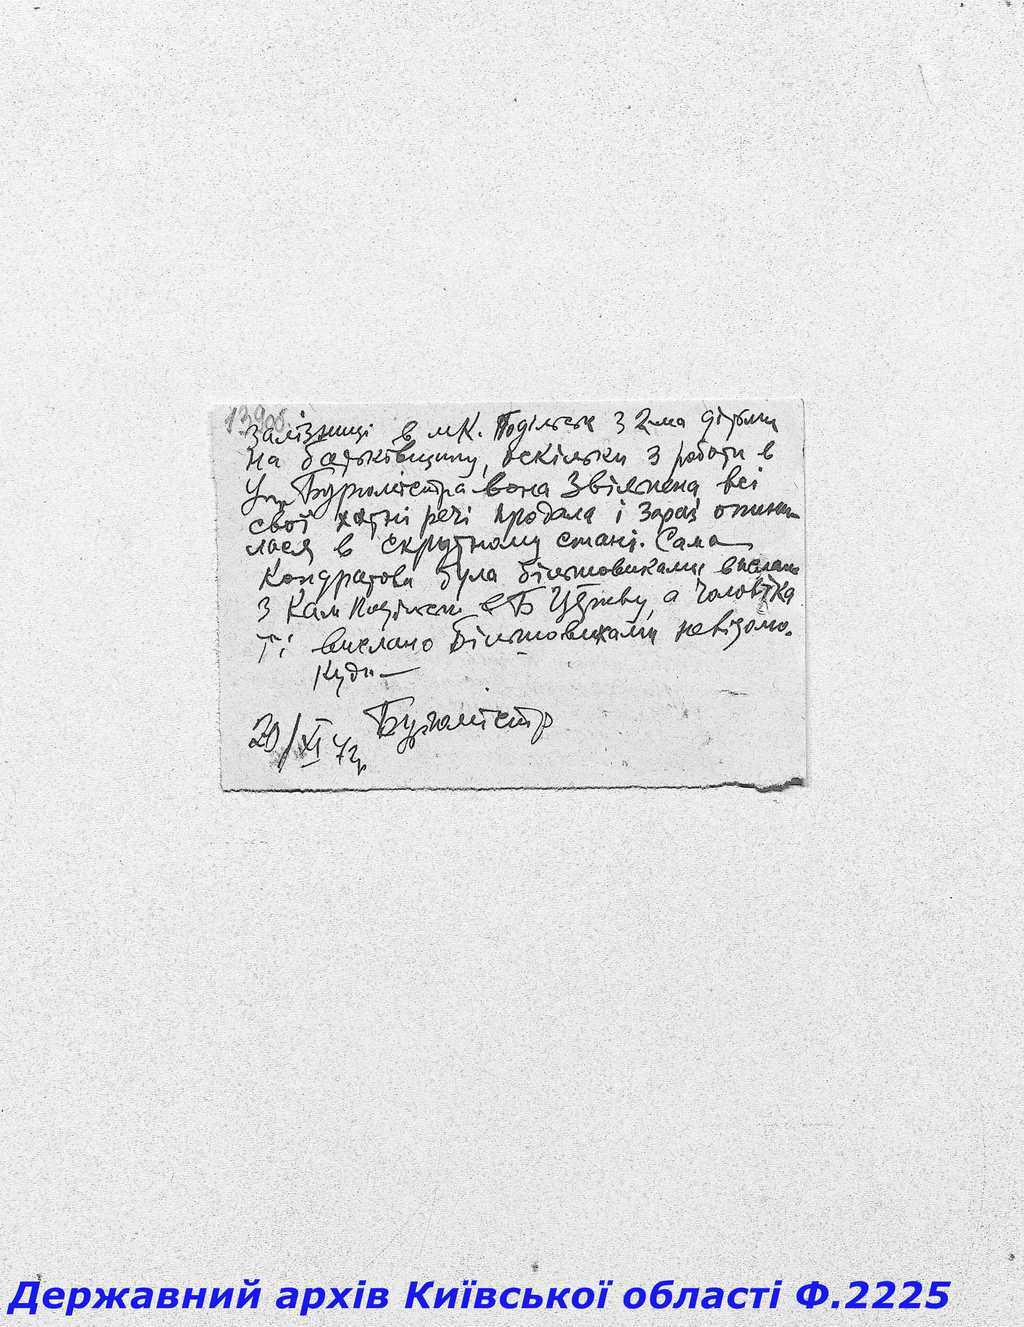 139об.
Залізниці в м К. Подільськ з 2-ма дітьми
на батьківщину, оскільки з роботи в
Упр. Бургомістра вона звільнена, всі
свої хатні речі продала і зараз опини-
лася в скрутному стані. Сама
Кондратова була більшовиками вислана
з Кам Подільськ в Б Церкву, а чоловіка
її вислано більшовиками невідомо
куди
20/XI 42р. Бургомістр
Державний архів Київської області Ф.2225